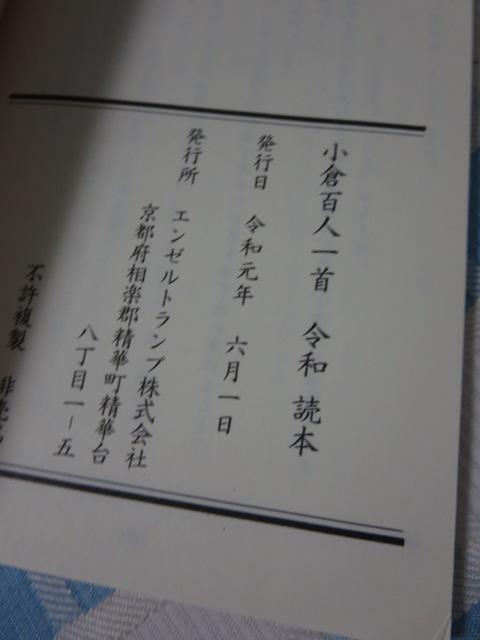 小倉百人一首　令和　読本
発行日　令和元年　六月一日
発行所　エンゼルトランプ株式会社
京都府相楽郡精華町精華台
八丁目一ー五
不許複製　非売品